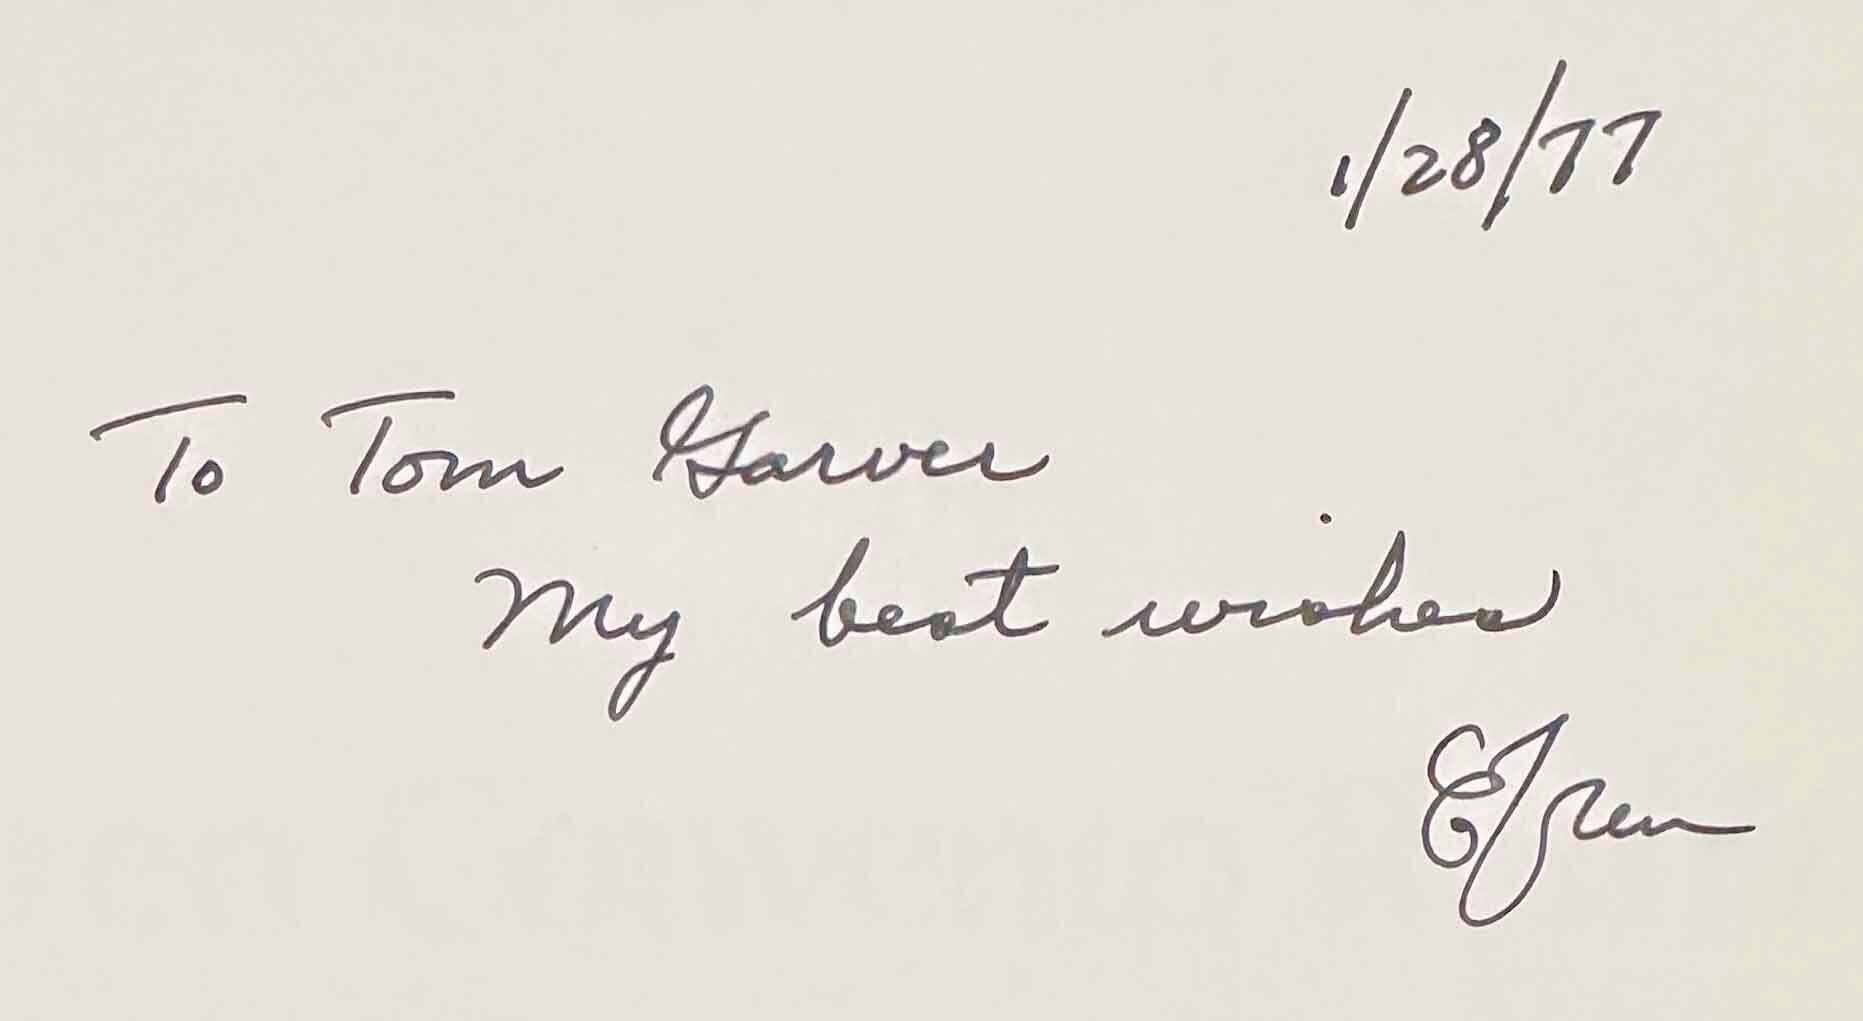 1/28/77
To Tom Garver
My best wishes
Efren